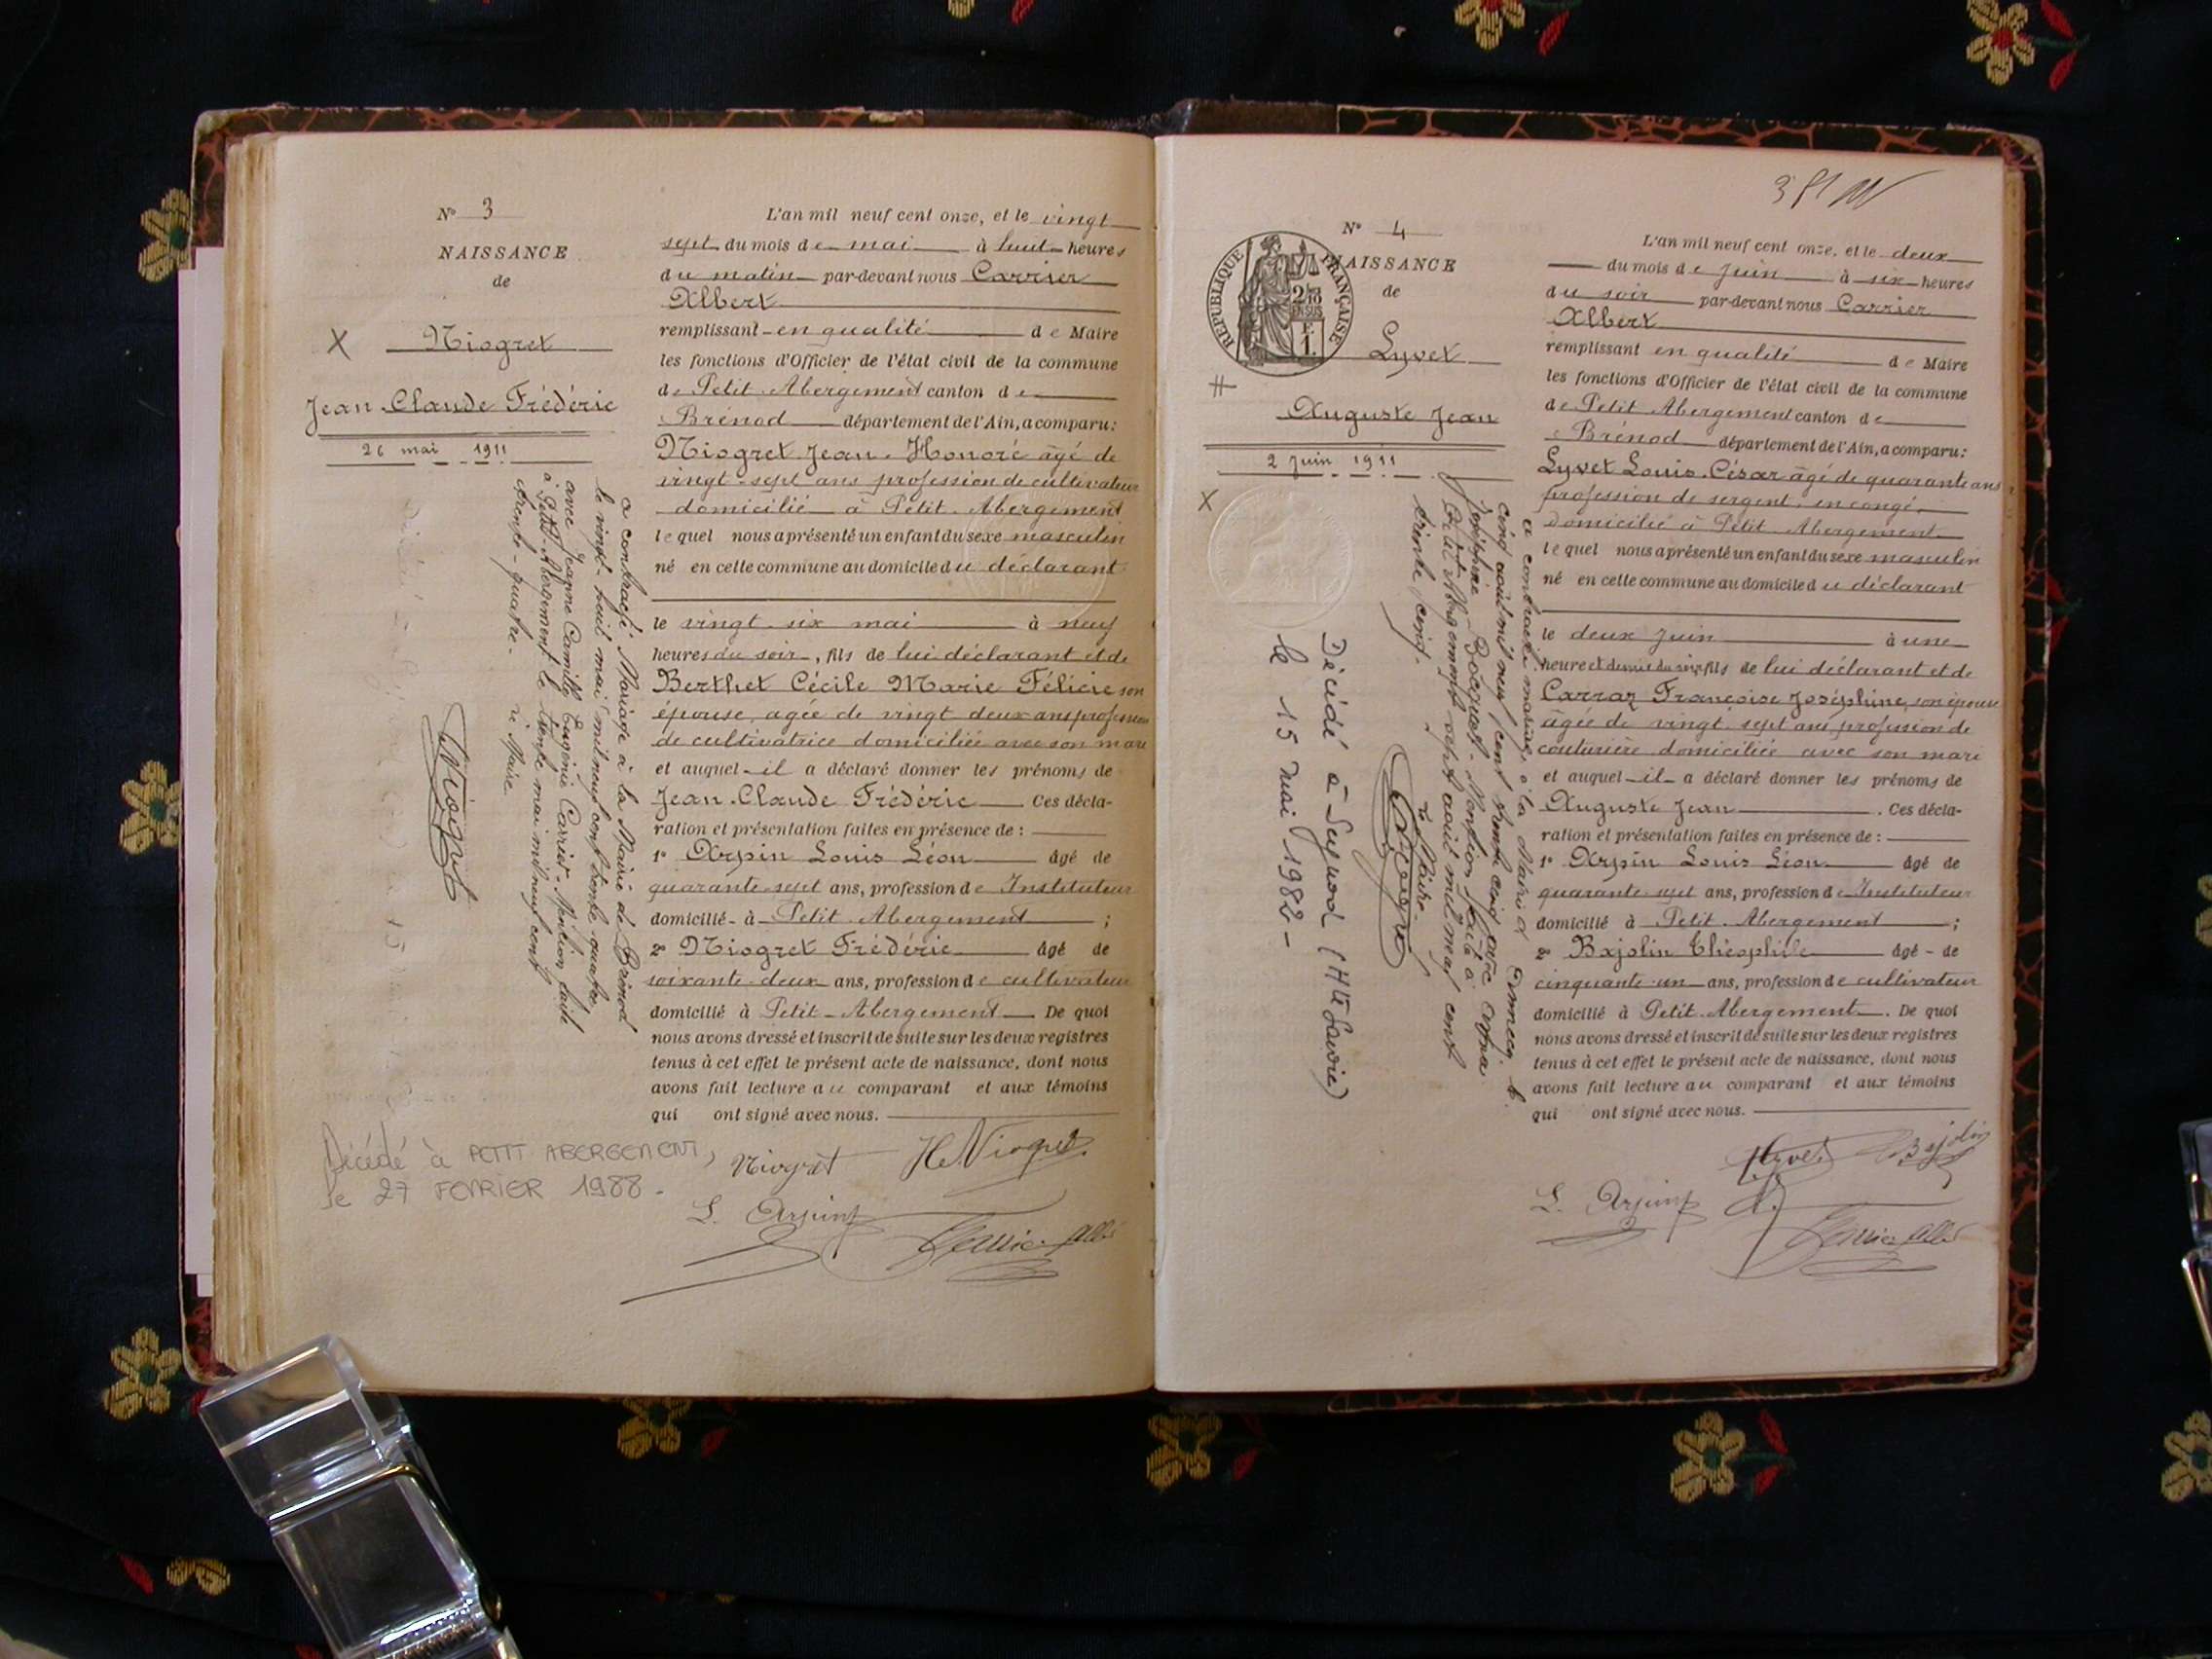 N° 3
NAISSANCE
de
X
Niogret
Jean-Claude Frédéric
26 mai 1911
a contracté Mariage à la Mairie de Brénod
le vingt-huit mai mil neuf cent trente quatre
avec Jeanne Camille Eugénie Carrier - Mention faite
à Petit-Abergement le trente mai mil neuf cent
trente-quatre. le Maire
Niogret
Décédé à PETIT ABERGEMENT,
le 27 FEVRIER 1988.
L'an mil neuf cent onze, et le vingt
sept du mois de mai à huit heures
du matin par-devant nous Carrier
Albert
remplissant en qualité de Maire
les fonctions d'Officier de l'état civil de la commune
de Petit-Abergement canton de
Brénod département de l'Ain, a comparu:
Niogret Jean-Honoré âgé de
vingt-sept ans profession de cultivateur
domicilié à Petit-Abergement
lequel nous a présenté un enfant du sexe masculin
né en cette commune au domicile du déclarant
le vingt-six mai à neuf
heures du soir, fils de lui déclarant et de
Berthet Cécile Marie Félicie son
épouse, agée de vingt deux ans profession
de cultivatrice domiciliée avec son mari
et auquel il a déclaré donner les prénoms de
Jean-Claude Frédéric Ces décla-
ration et présentation faites en présence de :
1° Arpin Louis Léon âgé de
quarante-sept ans, profession de Instituteur
domicilié à Petit-Abergement ;
2° Niogret Frédéric âgé de
soixante-deux ans, profession de cultivateur
domicilié à Petit-Abergement De quoi
nous avons dressé et inscrit de suite sur les deux registres
tenus à cet effet le présent acte de naissance, dont nous
avons fait lecture au comparant et aux témoins
qui ont signé avec nous.
Niogret H. Niogret
L. Arpin Carrier Albt
N° 4
RÉPUBLIQUE FRANÇAISE
2/10 EN SUS
F. 1.
NAISSANCE
de
Lyvet
#
Auguste Jean
2 Juin 1911
X
a contracté mariage à la Mairie d'Annecy le
cinq août mil neuf cent trente cinq avec
Joséphine Bocquet. Mention faite à
Petit Abergement le sept août mil neuf cent
trente cinq.
le Maire.
Niogret
Décédé à Seynod (Hte Savoie)
le 15 Mai 1982 -
L'an mil neuf cent onze, et le deux
du mois de Juin à six heures
du soir par-devant nous Carrier
Albert
remplissant en qualité de Maire
les fonctions d'Officier de l'état civil de la commune
de Petit Abergement canton de
Brénod département de l'Ain, a comparu:
Lyvet Louis-César âgé de quarante ans
profession de sergent en congé,
domicilié à Petit-Abergement
lequel nous a présenté un enfant du sexe masculin
né en cette commune au domicile du déclarant
le deux Juin à une
heure et demie du soir, fils de lui déclarant et de
Carraz Françoise Joséphine, son épouse
âgée de vingt-sept ans, profession de
couturière domiciliée avec son mari
et auquel il a déclaré donner les prénoms de
Auguste Jean. Ces décla-
ration et présentation faites en présence de :
1° Arpin Louis Léon âgé de
quarante-sept ans, profession de Instituteur
domicilié à Petit-Abergement ;
2° Bajolin Théophile âgé de
cinquante-un ans, profession de cultivateur
domicilié à Petit-Abergement. De quoi
nous avons dressé et inscrit de suite sur les deux registres
tenus à cet effet le présent acte de naissance, dont nous
avons fait lecture au comparant et aux témoins
qui ont signé avec nous.
Lyvet Bajolin
L. Arpin Carrier Albt